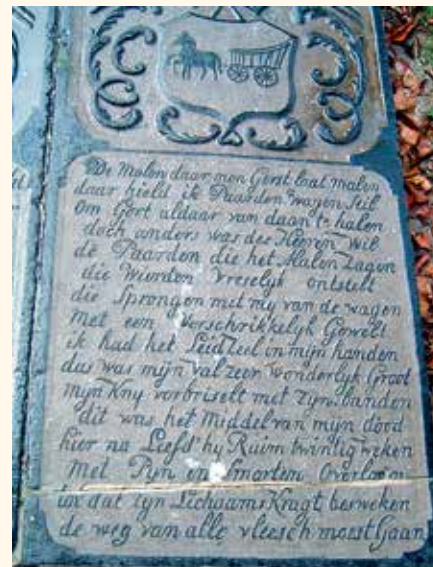 De Molen daar men Gerst laat malen
daar hield ik Paarden wagen stil
Om Gort aldaar van daan te halen
doch anders was des Heeren Wil
de Paarden die het Malen Zagen
die Wierden Vreselyk ontstelt
die Sprongen met my van de wagen
Met een Verschrikkelyk Gewelt
ik had het Leidzeel in mijn handen
dus was mijn val zeer wonderlyk Groot
Myn Kny verbriselt met zyn banden
dit was het Middel van mijn dood
hier na Liefd' hy Ruim twintig weken
Met Pyn en Smerten
tot dat zyn Lichaams Kragt besweken
de weg van alle vleesch moest Gaan